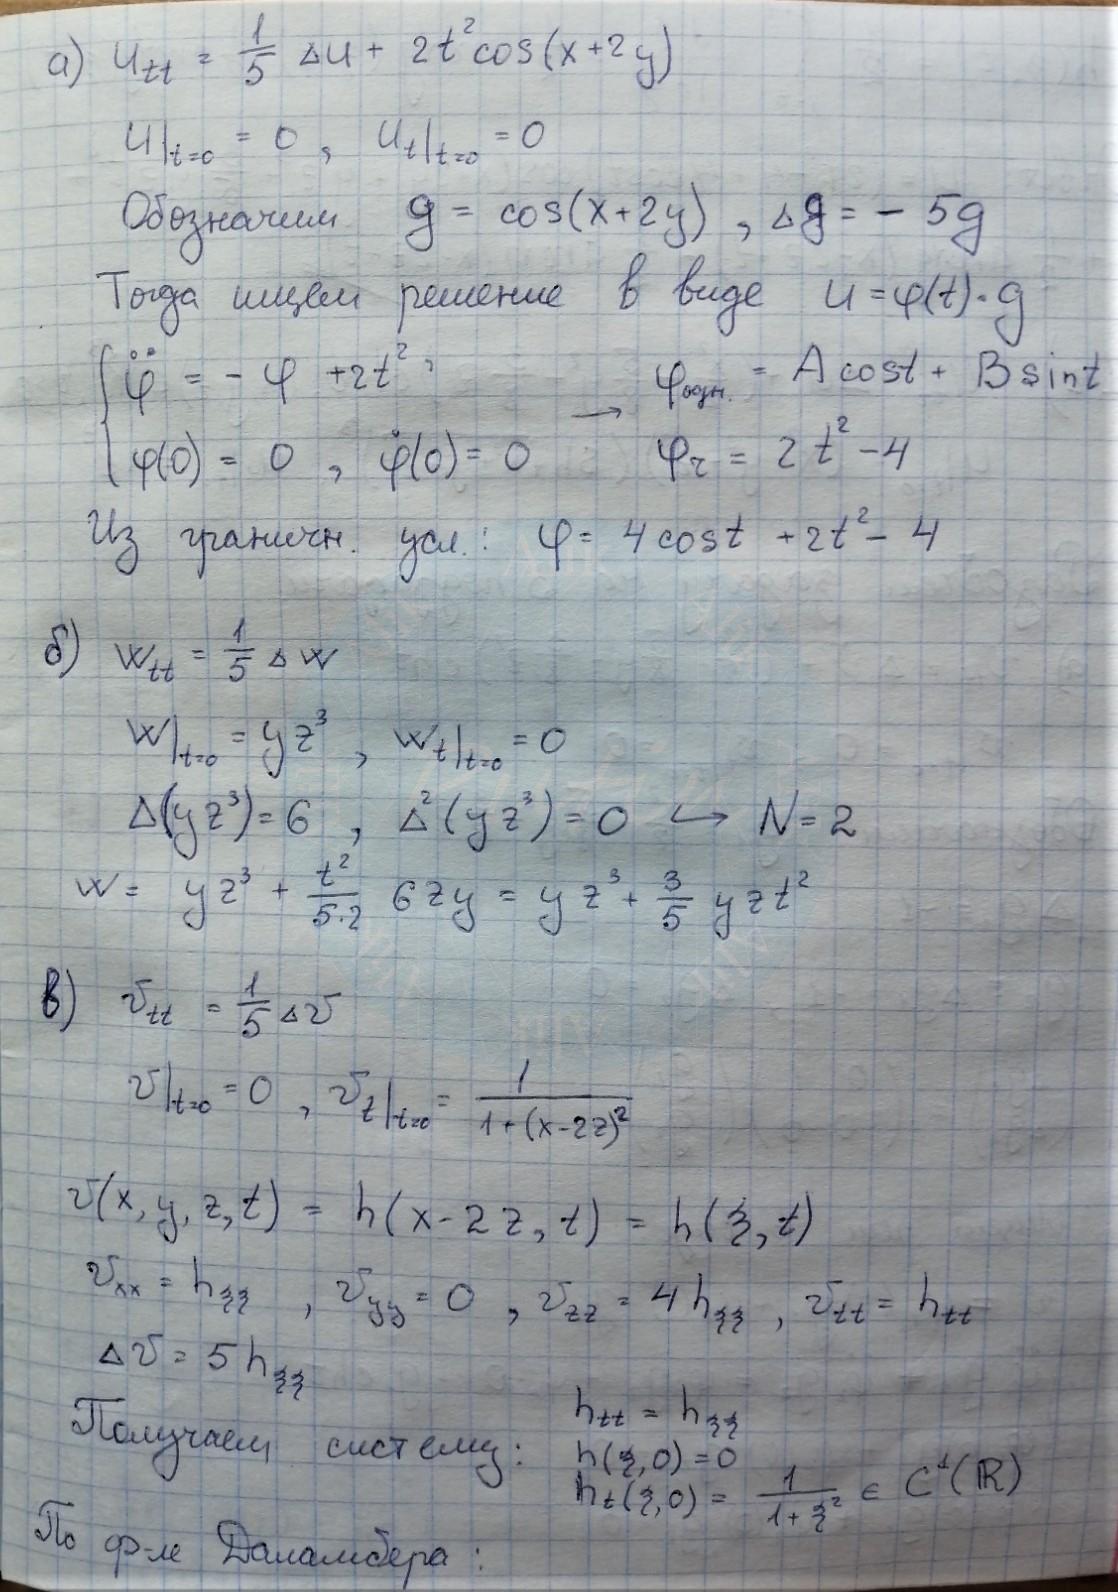 а) u_tt = 1/5 Δu + 2t² cos(x+2y)
u|t=0 = 0 , u_t|t=0 = 0
Обозначим g = cos(x+2y) , Δg = - 5g
Тогда ищем решение в виде u = φ(t)·g
{ φ̈ = - φ + 2t² , φодн. = A cost + B sint
φ(0) = 0 , φ̇(0) = 0 → φч = 2t² - 4
Из граничн. усл.: φ = 4 cost + 2t² - 4
б) w_tt = 1/5 Δ w
w|t=0 = yz³ , w_t|t=0 = 0
Δ(yz³) = 6 , Δ²(yz³) = 0 ↪ N = 2
w = yz³ + t²/(5·2) 6zy = yz³ + 3/5 yzt²
в) v_tt = 1/5 Δv
v|t=0 = 0 , v_t|t=0 = 1/(1+(x-2z)²)
v(x, y, z, t) = h(x-2z, t) = h(ξ, t)
v_xx = h_ξξ , v_yy = 0 , v_zz = 4h_ξξ , v_tt = h_tt
Δv = 5h_ξξ
Получаем систему: h_tt = h_ξξ
h(ξ,0) = 0
h_t(ξ,0) = 1/(1+ξ²) ∈ C¹(ℝ)
По ф-ле Даламбера :